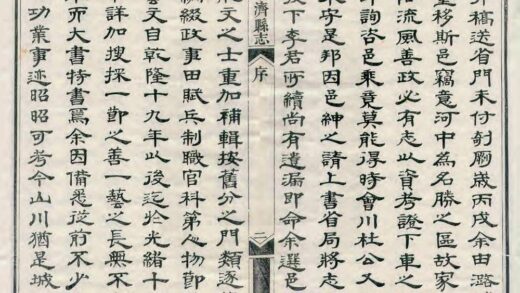 并稿送省門未付剞劂歲丙戌余由潞
量移斯邑竊意河中為名勝之區故家
俗流風善政必有志以資考證下車之
即詢咨邑乘竟莫能得時會川杜公又
來守是邦因邑紳之請上書省局將志
投下李君所續尚有遺漏即命余選邑
濟縣志
序
二
能文之士重加補輯按舊分之門類逐
編綴政事田賦兵制職官科第人物節
藝文自乾隆十九年以後迄於光緒十
詳加搜採一節之善一藝之長無不
而大書特書焉余因備悉從前不少
功業事迹昭昭可考今山川猶是城